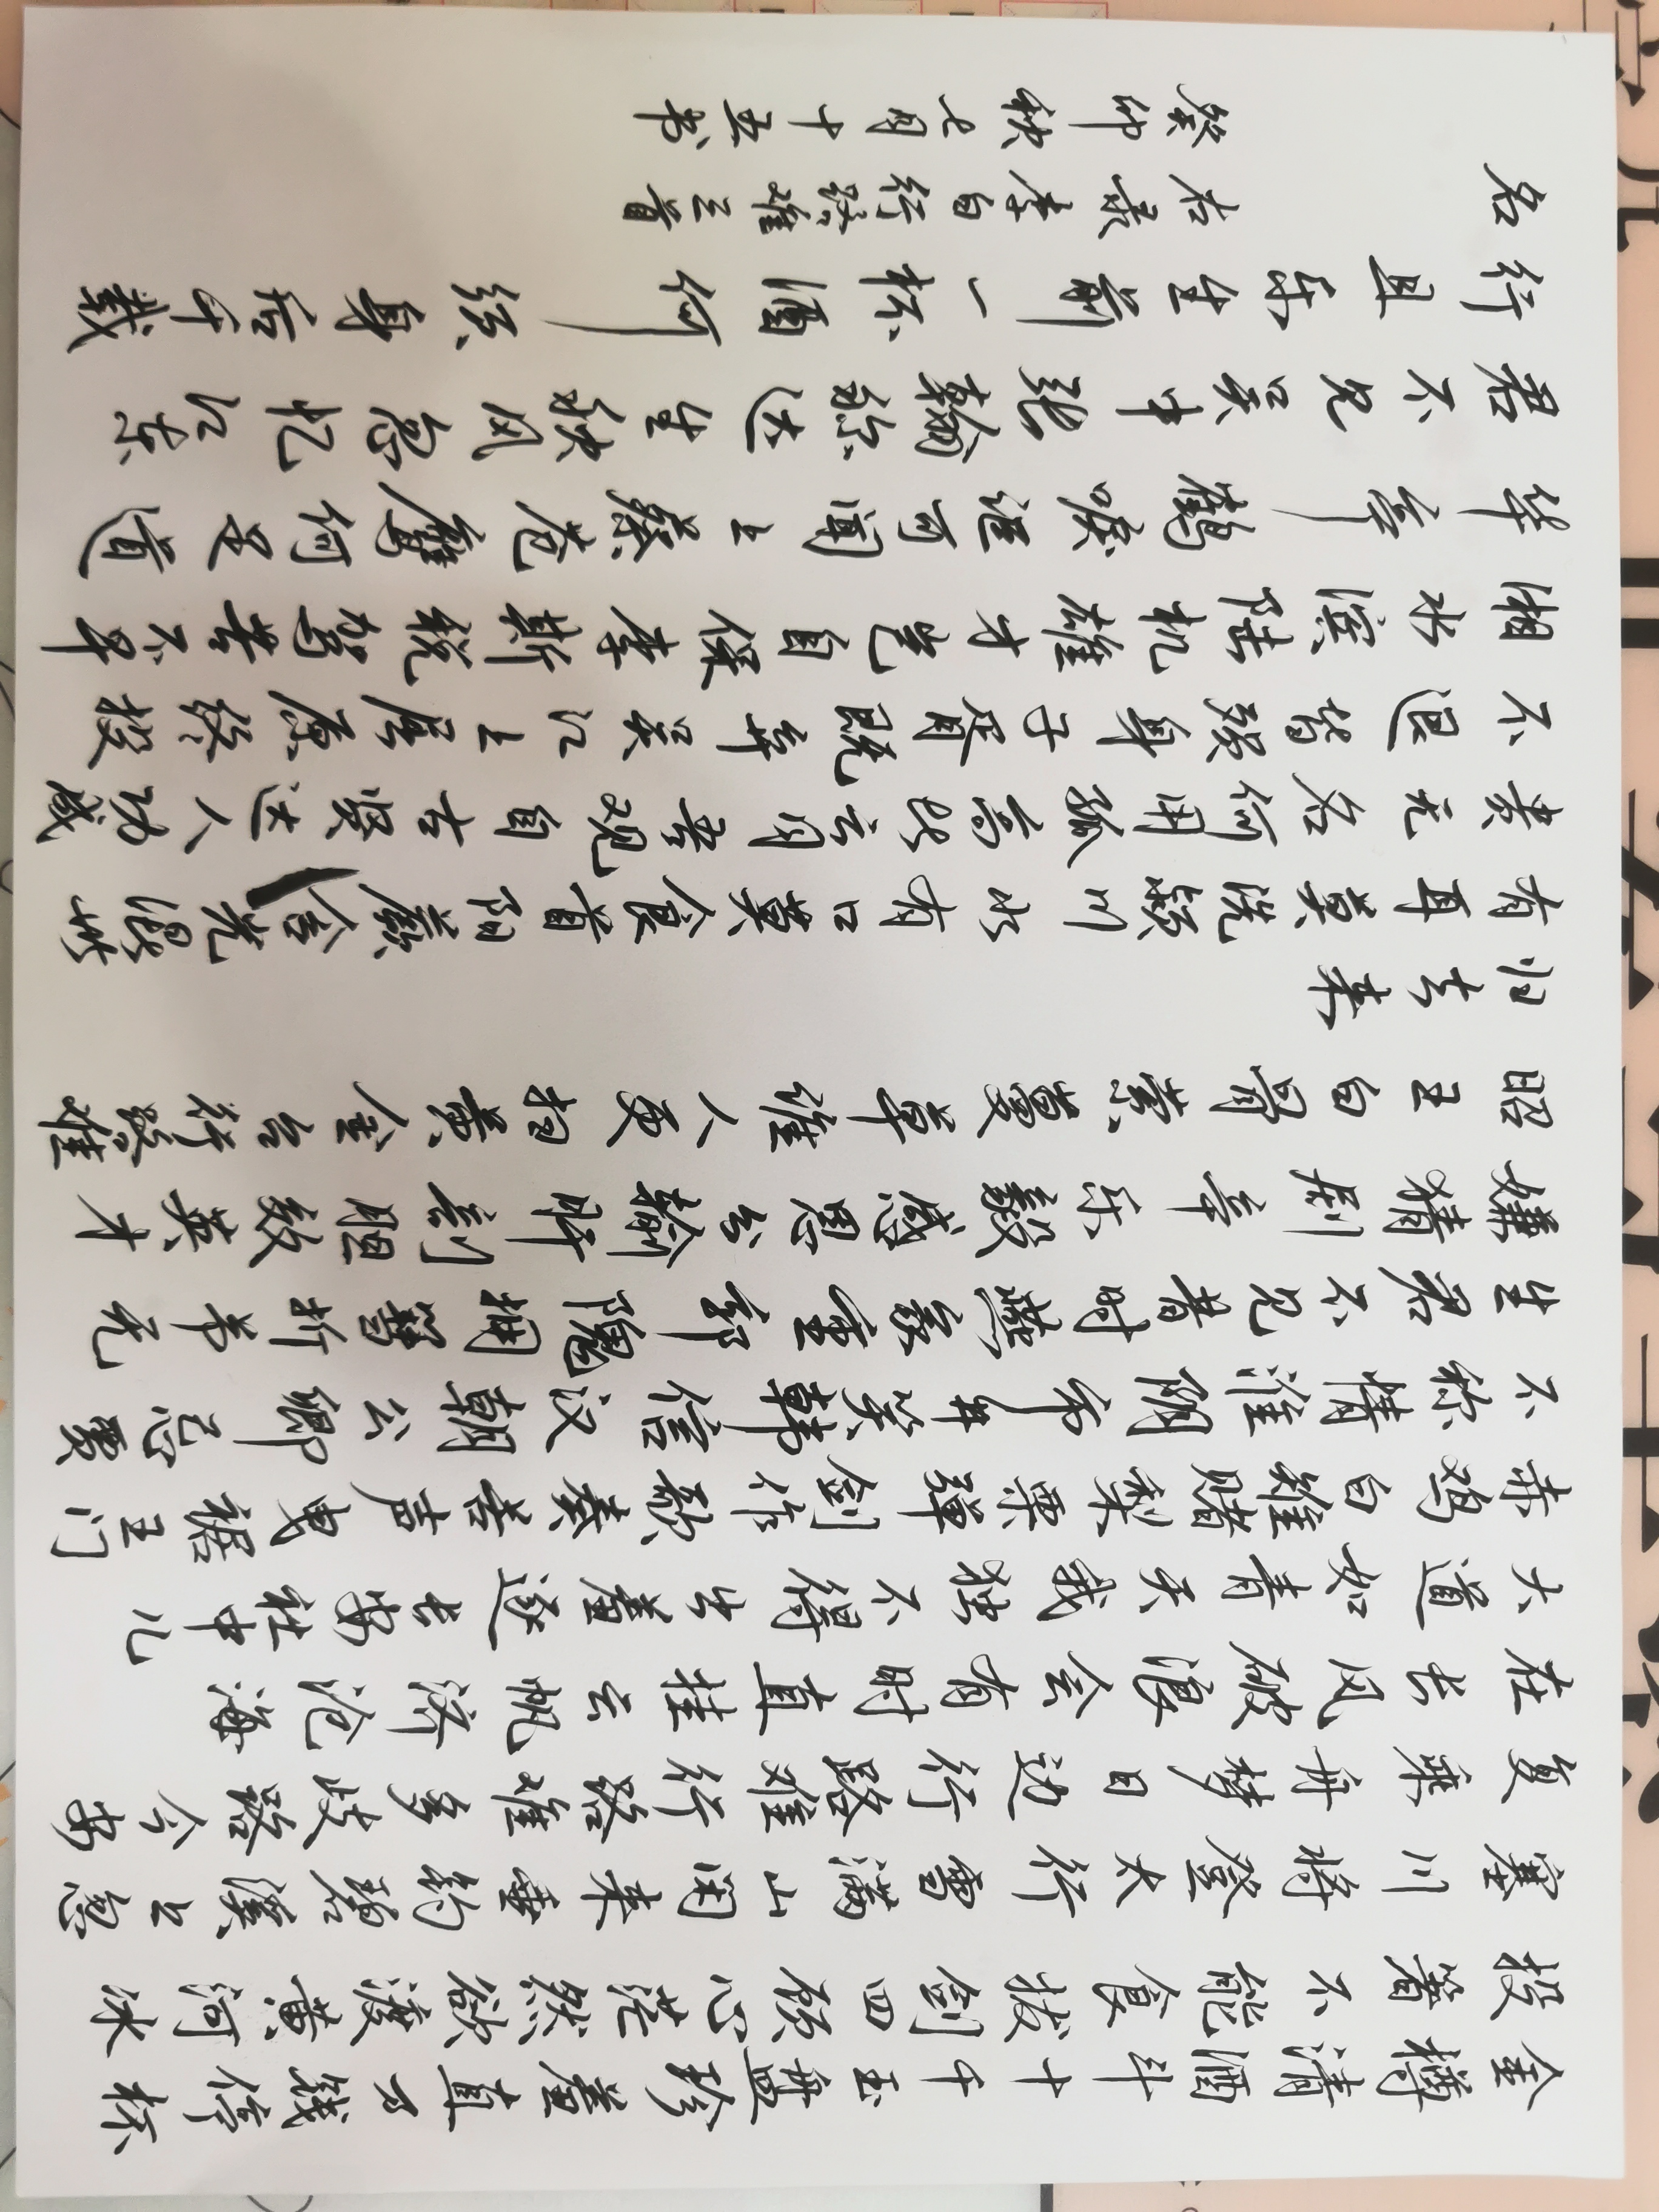 金樽清酒斗十千玉盘珍羞直万钱停杯
投箸不能食拔剑四顾心茫然欲渡黄河冰
塞川将登太行雪满山闲来垂钓碧溪上忽
复乘舟梦日边行路难行路难多歧路今安
在长风破浪会有时直挂云帆济沧海
大道如青天我独不得出羞逐长安社中儿
赤鸡白雉赌梨栗弹剑作歌奏苦声曳裾王门
不称情淮阴市井笑韩信汉朝公卿忌贾
生君不见昔时燕家重郭隗拥篲折节无
嫌猜剧辛乐毅感恩分输肝剖胆效英才
昭王白骨萦蔓草谁人更扫黄金台行路难
归去来
有耳莫洗颍川水有口莫食首阳蕨含光混世
贵无名何用孤高比云月吾观自古贤达人功成
不退皆殒身子胥既弃吴江上屈原终投
湘水滨陆机雄才岂自保李斯税驾苦不早
华亭鹤唳讵可闻上蔡苍鹰何足道
君不见吴中张翰称达生秋风忽忆江东
行且乐生前一杯酒何须身后千载
名
右录李白行路难三首
癸卯秋七月十五书